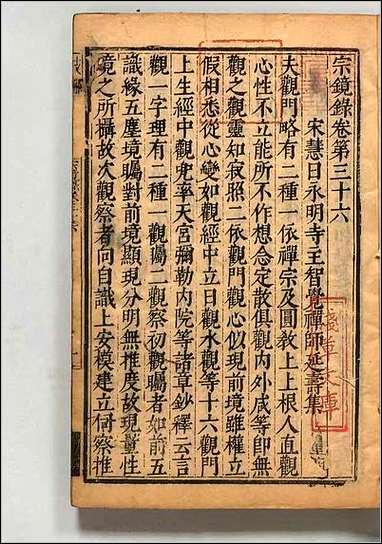 宗鏡錄卷第三十六
宋慧日永明寺主智覺禪師延壽集
夫觀門略有二種一依禪宗及圓教上上根人直觀
心性不立能所不作想念定散俱觀內外咸等即無
觀之觀靈知寂照二依觀門觀心似現前境雖權立
假相悉從心變如觀經中立日觀水觀等十六觀門
上生經中觀兜率天宮彌勒內院等諸章鈔釋云言
觀一字理有二種一觀矚二觀察初觀矚者如前五
識緣五塵境矚對前境顯現分明無推度故現量性
境之所攝故次觀察者向自識上安模建立伺察推